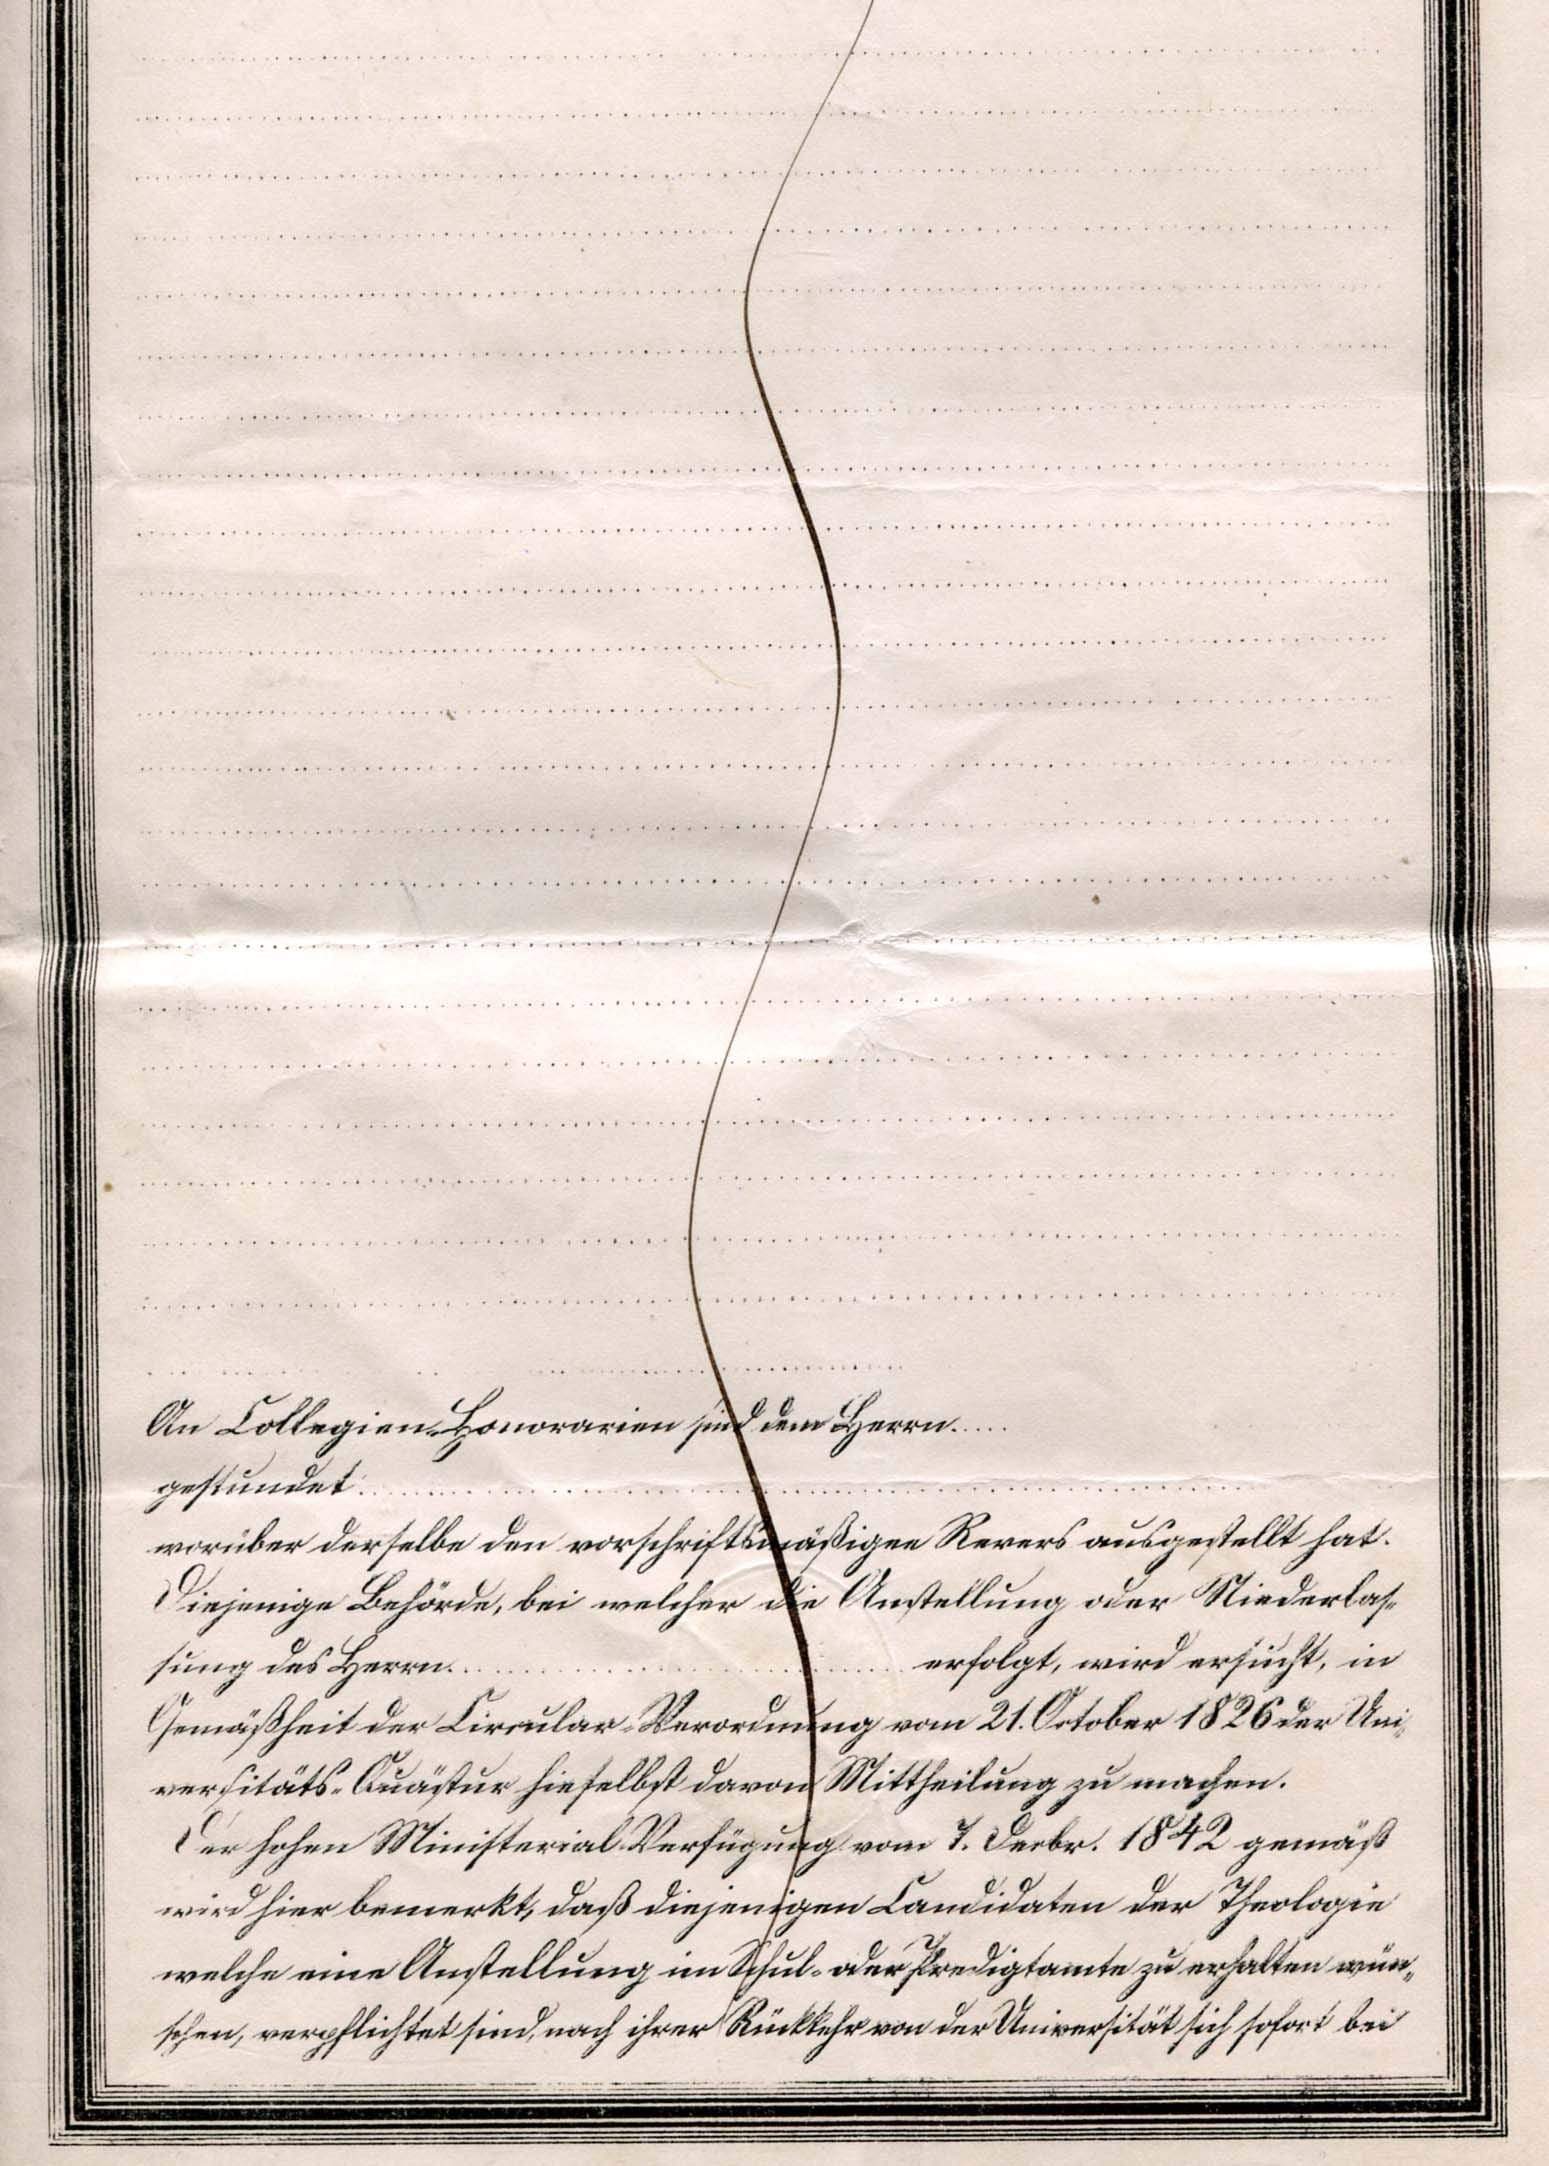 An Collegien-Honorarien sind dem Herrn.....
gestundet
worüber derselbe den vorschriftsmäßigen Revers ausgestellt hat.
Diejenige Behörde, bei welcher die Anstellung oder Niederlas-
sung des Herrn erfolgt, wird ersucht, in
Gemäßheit der Circular-Verordnung vom 21. October 1826 der Uni-
versitäts-Quästur hieselbst davon Mittheilung zu machen.
Der hohen Ministerial-Verfügung vom 7. Decbr. 1842 gemäß
wird hier bemerkt, daß diejenigen Candidaten der Theologie
welche eine Anstellung im Schul- oder Predigtamte zu erhalten wün-
schen, verpflichtet sind, nach ihrer Rückkehr von der Universität sich sofort bei